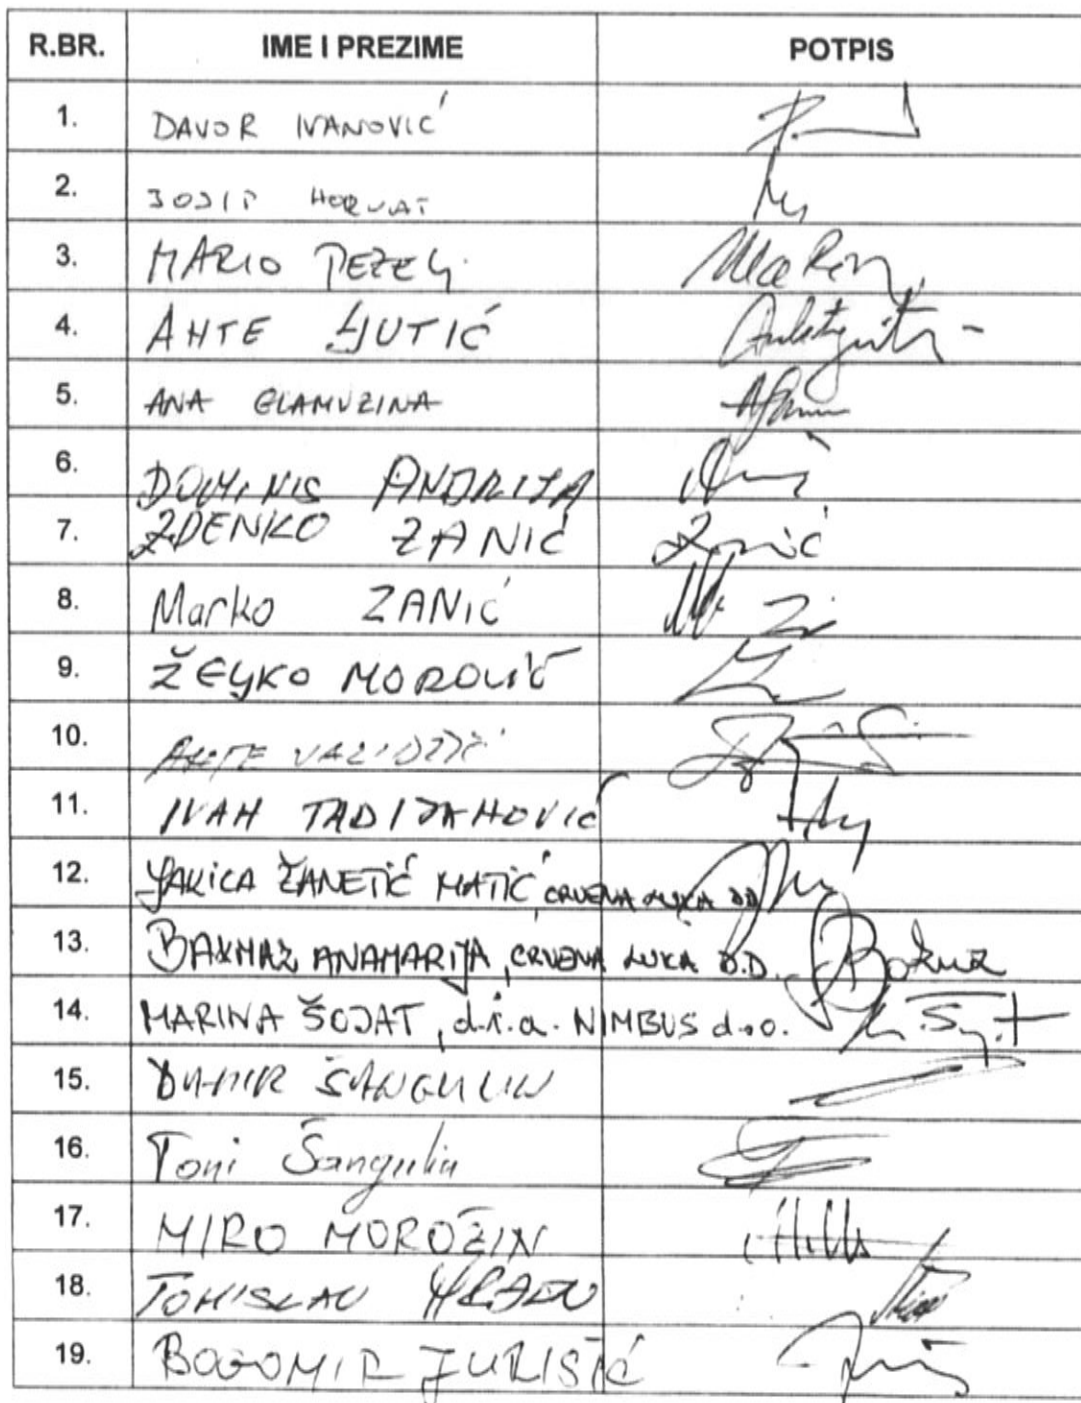 R.BR. IME I PREZIME POTPIS
1. DAVOR IVANOVIĆ
2. JOSIP HORVAT
3. MARIO PEZELJ
4. ANTE LJUTIĆ
5. ANA GLAMUZINA
6. DOMINIS ANDRIJA
7. ZDENKO ZANIĆ
8. Marko ZANIĆ
9. ŽELJKO MOROVIĆ
10. ANTE
11. IVAN TADIJANOVIĆ
12. ŽANETIĆ MATIĆ, CRVENA LUKA DD
13. BAKMAZ ANAMARIJA, CRVENA LUKA D.D.
14. MARINA ŠOJAT, d.i.a. NIMBUS d.o.o.
15. DAMIR ŠANGULIN
16. Toni Šangulin
17. MIRO MOROŽIN
18. TOMISLAV
19. BOGOMIR JURIŠIĆ